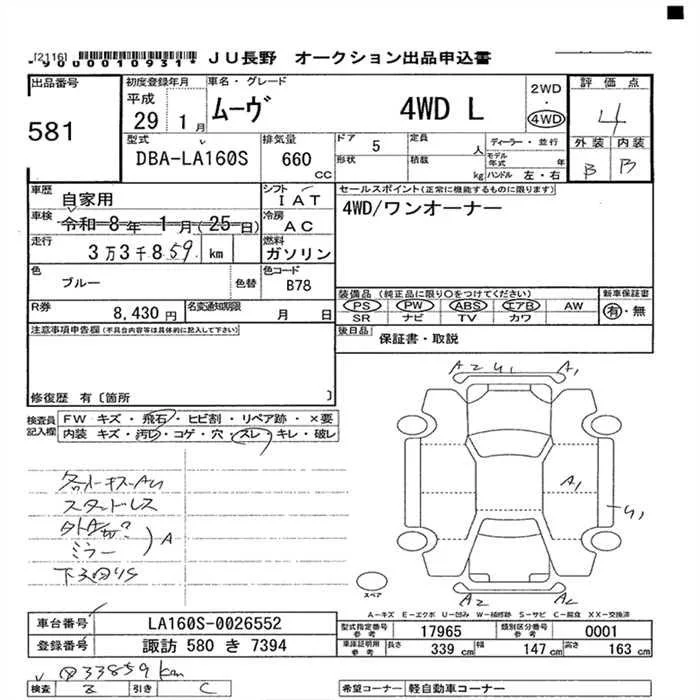 [2116] *9000010931* JU長野 オークション出品申込書
出品番号 初度登録年月 車名・グレード 2WD・4WD 評価点
581 平成 29 1月 ムーヴ 4WD L 4
型式 排気量 ドア 定員 ディーラー・並行 外装 内装
DBA-LA160S 660 CC 5 人 形状 積載 kg モデル年式 年 ハンドル 左・右 B B
車歴 自家用 シフト IAT セールスポイント(正常に機能するものに限ります)
車検 令和 8年 1月(25日) 冷房 AC 4WD/ワンオーナー
走行 3万3千859 km 燃料 ガソリン
色 ブルー 色替 色コード B78 装備品 (純正品に限り○をつけてください) 新車保証書
PS PW ABS エアB AW 有・無
R券 8,430円 名変通知期限 月 日 SR ナビ TV カワ
注意事項申告欄(不具合内容等は具体的に記入して下さい) 後日品 保証書・取説
修復歴 有〔箇所 〕
検査員記入欄 FW キズ・飛石・ヒビ割・リペア跡・×要
内装 キズ・汚レ・コゲ・穴・スレ・キレ・破レ
A2 U1 A1
A1
U1
スタッドレス
ミラー
A
スペア
A2 A2
A-キズ E-エクボ U-凹み W-補修跡 S-サビ C-腐食 XX-交換済
車台番号 LA160S-0026552 型式指定番号 参考 17965 類別区分番号 参考 0001
登録番号 諏訪 580 き 7394 車庫証明用 参考 長さ 339 cm 幅 147 cm 高さ 163 cm
33859 km
検査 B 引き C 希望コーナー 軽自動車コーナー